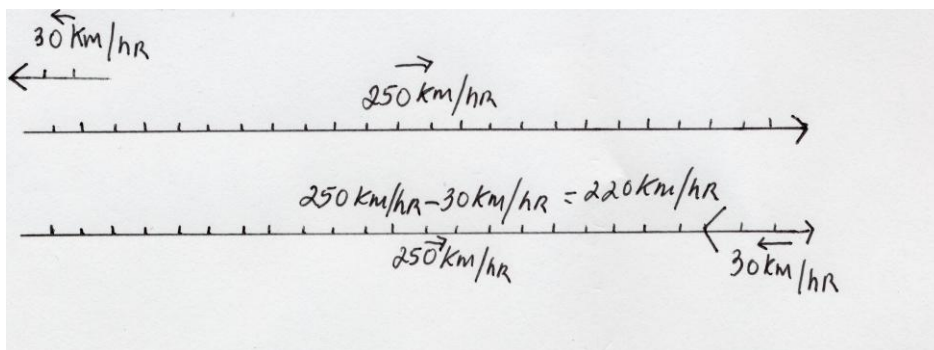 30 Km/hR
250 Km/hR
250 Km/hR - 30 Km/hR = 220 Km/hR
250 Km/hR
30 Km/hR